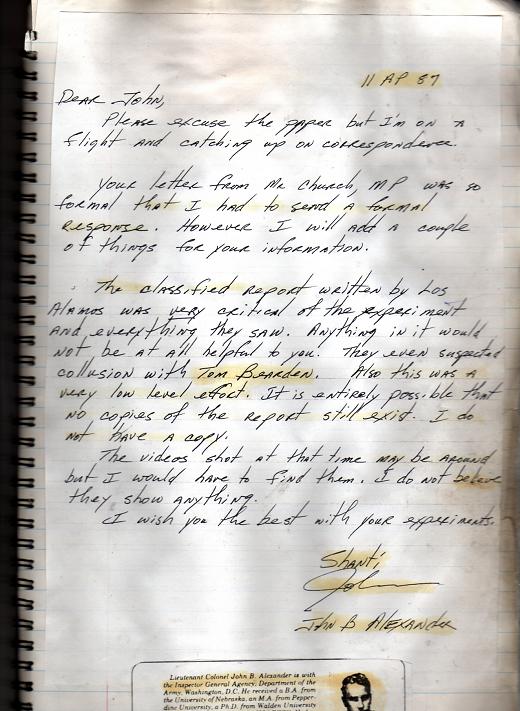 11 AP 87
DEAR JOHN,
PLEASE EXCUSE the paper but I'm ON A
flight AND CATCHING UP ON CORRESPONDENCE.
YOUR letter from Mr Church, MP WAS SO
formal that I HAD to SEND A formal
RESPONSE. However I will ADD A couple
of things for your INFORMATION.
The classified report written by Los
ALAMOS WAS very critical of the experiment
AND everything they SAW. Anything in it would
NOT be at all helpful to you. They even suspected
collusion with Tom BEARDEN. Also this was A
very low level effort. It is entirely possible that
NO copies of the report still exist. I do
NOT HAVE A copy.
The videos shot at that time may be AROUND
but I would have to find them. I do not believe
they show anything.
I wish you the best with your experiments.
Shanti
John
JOHN B ALEXANDER
Lieutenant Colonel John B. Alexander is with
the Inspector General Agency, Department of the
Army, Washington, D.C. He received a B.A. from
the University of Nebraska, an M.A. from Pepper-
dine University, a Ph.D. from Walden University